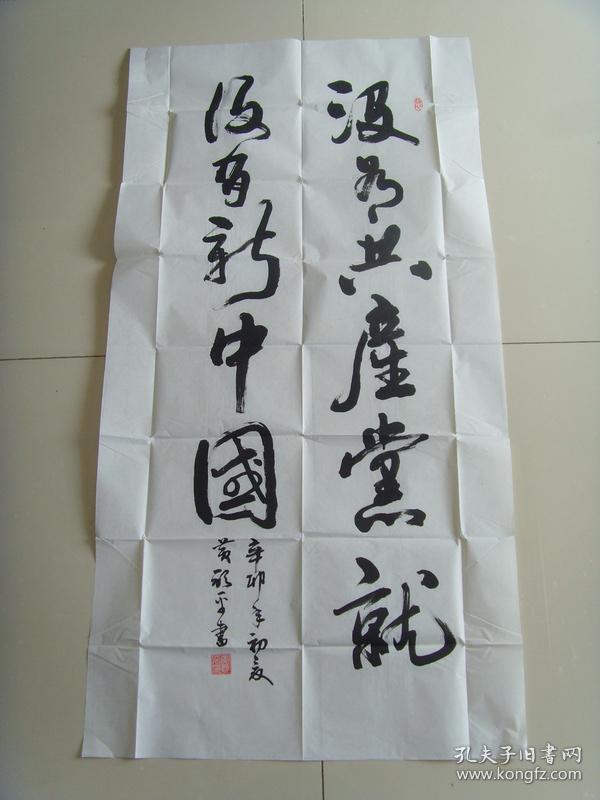 没有共產黨就
没有新中國
辛卯年初夏
黄新平書
孔夫子旧书网
www.kongfz.com